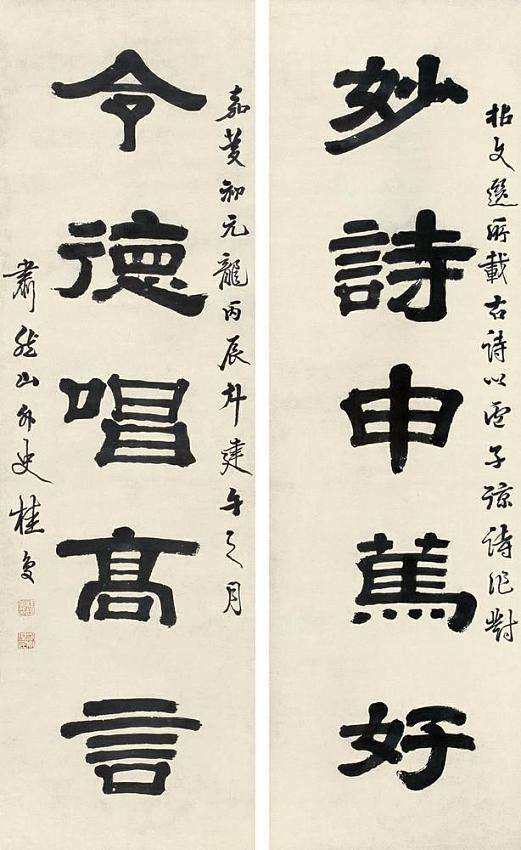 拈文選所載古詩以盧子諒詩作對
妙詩申篤好
嘉慶初元龍丙辰斗建午之月
令德唱高言
肅然山外史桂复